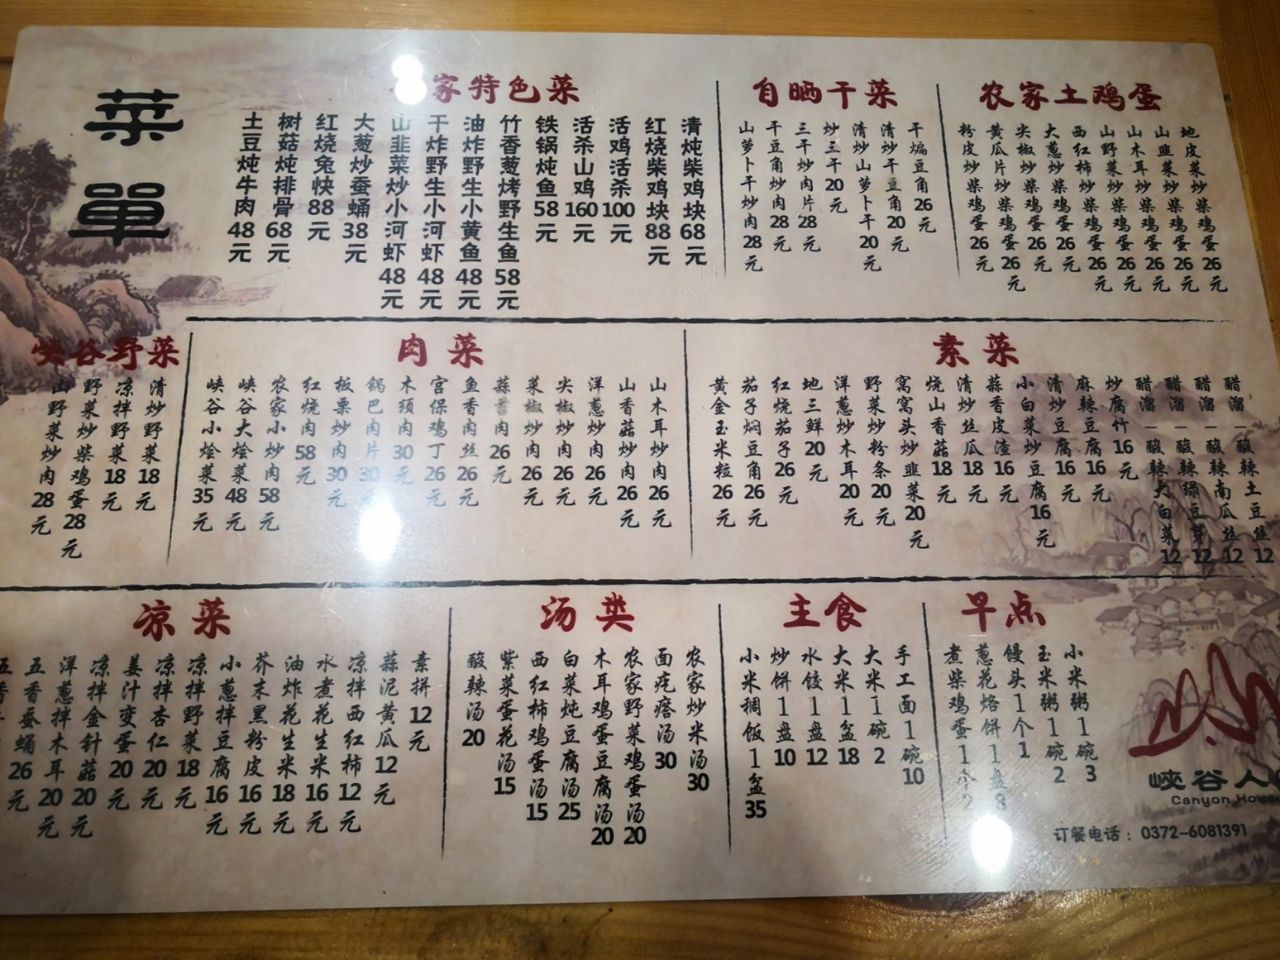 菜單
家特色菜
土豆炖牛肉48元
树菇炖排骨68元
红烧兔快88元
大葱炒蚕蛹38元
山韭菜炒小河虾48元
干炸野生小河虾48元
油炸野生小黄鱼48元
竹香葱烤野生鱼58元
铁锅炖鱼58元
活杀山鸡160元
活鸡活杀100元
红烧柴鸡块88元
清炖柴鸡块68元
自晒干菜
山萝卜干炒肉28元
干豆角炒肉28元
三干炒肉片28元
炒三干20元
清炒山萝卜干20元
清炒干豆角20元
干煸豆角26元
农家土鸡蛋
粉皮炒柴鸡蛋26元
黄瓜片炒柴鸡蛋26元
尖椒炒柴鸡蛋26元
大葱炒柴鸡蛋26元
西红柿炒柴鸡蛋26元
山野菜炒柴鸡蛋26元
山木耳炒柴鸡蛋26元
山韭菜炒柴鸡蛋26元
地皮菜炒柴鸡蛋26元
峡谷野菜
山野菜炒肉28元
野菜炒柴鸡蛋28元
凉拌野菜18元
清炒野菜18元
肉菜
峡谷小烩菜35元
峡谷大烩菜48元
农家小炒肉58元
红烧肉58元
板栗炒肉30元
锅巴肉片30元
木须肉30元
宫保鸡丁26元
鱼香肉丝26元
蒜苔肉26元
菜椒炒肉26元
尖椒炒肉26元
洋葱炒肉26元
山香菇炒肉26元
山木耳炒肉26元
素菜
黄金玉米粒26元
茄子焖豆角26元
红烧茄子26元
地三鲜20元
洋葱炒木耳20元
野菜炒粉条20元
窝窝头炒韭菜20元
烧山香菇18元
清炒丝瓜18元
蒜香皮渣16元
小白菜炒豆腐16元
清炒豆腐16元
麻辣豆腐16元
炒腐竹16元
醋溜—酸辣大白菜12
醋溜—酸辣绿豆芽12
醋溜—酸辣南瓜丝12
醋溜—酸辣土豆丝12
凉菜
26元
五香蚕蛹
洋葱拌木耳20元
凉拌金针菇20元
姜汁变蛋20元
凉拌杏仁20元
凉拌野菜18元
小葱拌豆腐16元
芥末黑粉皮16元
油炸花生米18元
水煮花生米16元
凉拌西红柿12元
蒜泥黄瓜12元
素拼12元
汤类
酸辣汤20
紫菜蛋花汤15
西红柿鸡蛋汤15
白菜炖豆腐汤25
木耳鸡蛋豆腐汤20
农家野菜鸡蛋汤20
面疙瘩汤30
农家炒米汤30
主食
小米稠饭1盆35
炒饼1盘10
水饺1盘12
大米1盆18
大米1碗2
手工面1碗10
早点
煮柴鸡蛋1个2
葱花烙饼1盘8
馒头1个1
玉米粥1碗2
小米粥1碗3
峡谷人
Canyon
订餐电话：0372-6081391